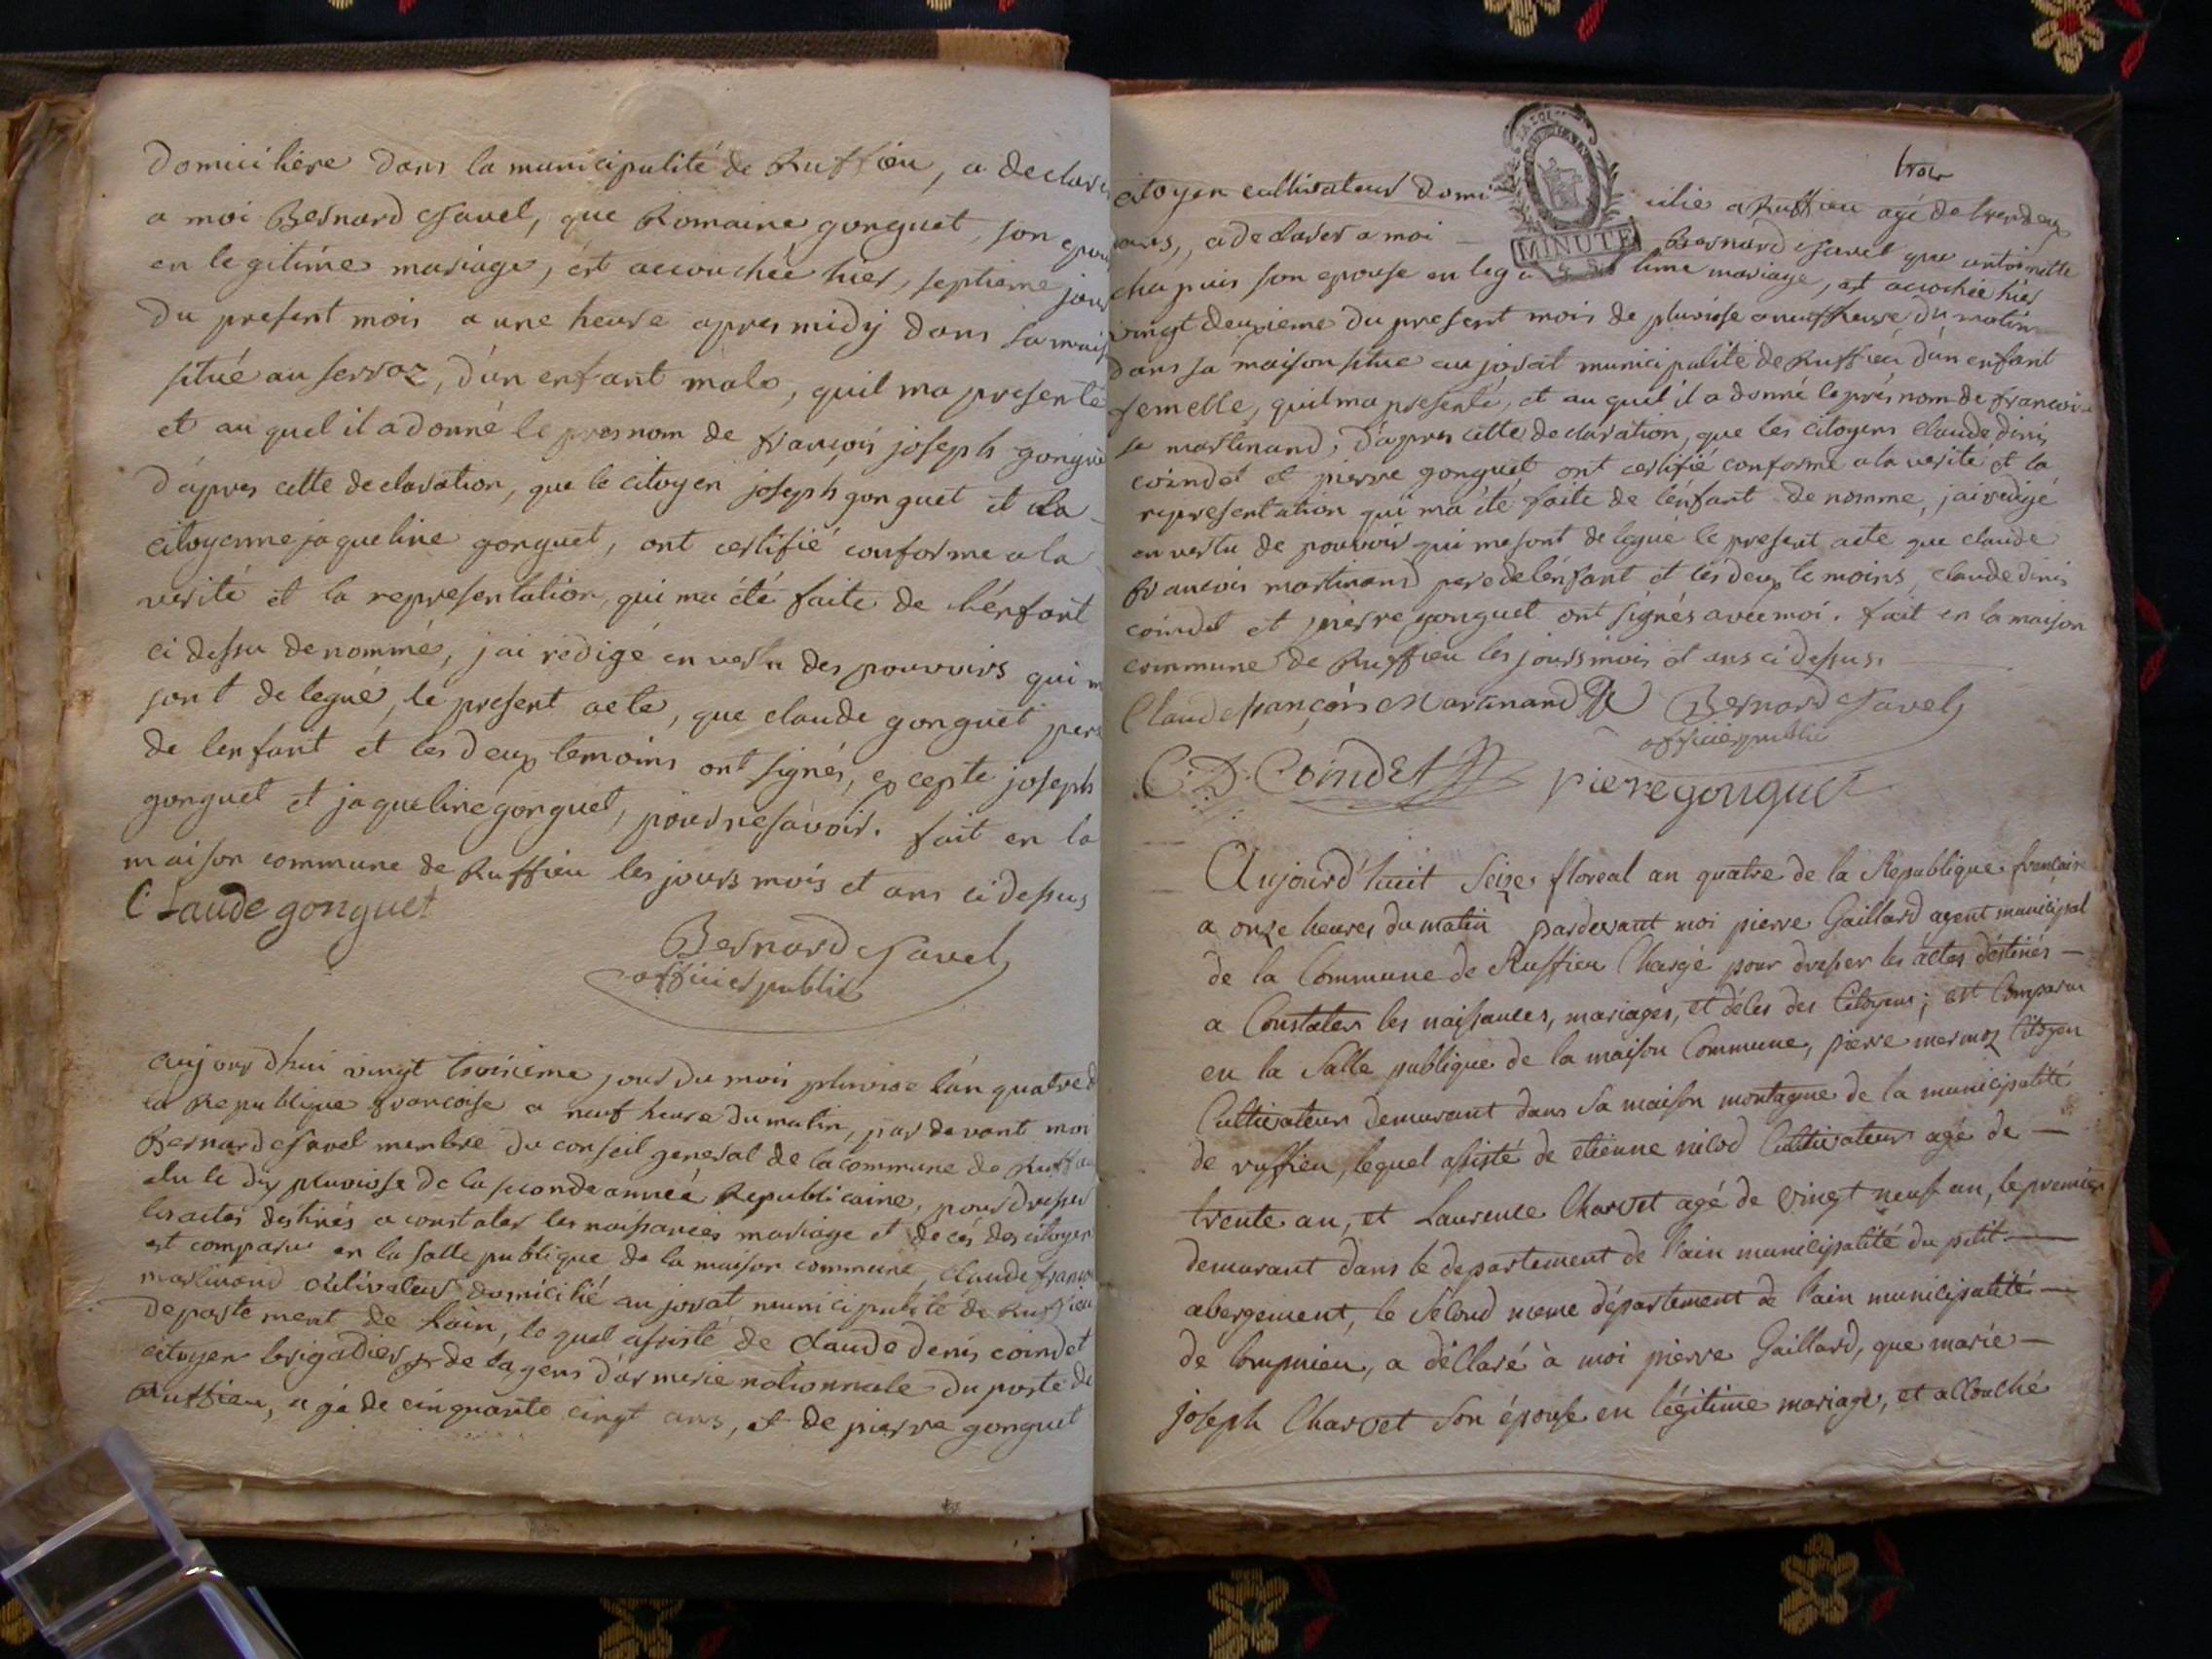 domicilière dans la municipalité de Ruffieu, a declaré
a moi Bernard Savel, que Romaine gonguet, son epous
en legitime mariage, ést accouchée hier, septieme jour
du present mois a une heure apres midÿ dans sa mais
situé au servoz, d'un enfant male, quil ma presenté
et au quel il a donné le presnom de françois joseph gongue
d'apres cette declaration, que le citoyen joseph gonguet et la
citoyenne jaqueline gonguet, ont certifié conforme a la
verité et la representation, qui ma été faite de l'énfant
ci dessu denommé, jai rédigé en vertu des pouvoirs qui m
sont delegué, le present acte, que claude gonguet pere
de lenfant et les deux temoins ont signés, excepte joseph
gonguet et jaqueline gonguet, pour ne savoir. fait en la
maison commune de Ruffieu les jours mois et ans ci dessus
Claude gonguet
Bernard Savel
officier public
aujourdhui vingt troisieme jour du mois pluviose lan quatre d
la Republique françoise a neuf heure du matin, par devant moi
Bernard Savel membre du conseil general de la commune de Ruffieu
elu le dix pluviose de la seconde année Republicaine, pour dresser
les actes destinés a constater les naissances mariage et decés des citoyens
est comparu en la salle publique de la maison commune, claude franço
martinand cultivateur domicilié au jorat municipalité de Ruffieu
departement de lain, le quel assisté de claude denis coindet
citoyen brigadier de la gens d'armerie nationnale du poste de
Ruffieu, agé de cinquante cinqt ans, et de pierre gonguet
MINUTE
citoyen cultivateur domi cilié a Ruffieu agé de trendeux
ans, a declarer a moi Bernard Savel que antoinette
chapuis son epouse en leg itime mariage, est accochée hier
vingt deuxieme du present mois de pluviose a neuf heure du matin
dans sa maison situe au jorat municipalité de Ruffieu d'un enfant
femelle, quil ma presenté, et au quel il a donné le prés nom de françoi
se martinand, d'apres cette declaration, que les citoyens claude dinis
coindet et pierre gonguet ont certifié conforme a la verite et la
representation qui ma été faite de l'énfant denommé, jai redigé
en vertu de pouvoir qui me sont delegué le present acte que claude
francois martinand pere de lénfant et les deux temoins claude dinis
coindet et pierre gonguet ont signés avec moi. fait en la maison
commune de Ruffieu les jours mois et ans ci dessus.
Claude françois Martinand Bernard Savel
officier public
C. D. Coindet pierre gonguet
Aujourd'huit Seize floreal an quatre de la Republique francaise
a onze heures du matin pardevant moi pierre Gaillard agent municipal
de la Commune de Ruffieu Chargé pour dresser les actes déstinés –
a Constater les naissances, mariages, et décès des Citoyens; est Comparu
en la Salle publique de la maison Commune, pierre mermoz Citoyen
Cultivateur demeurant dans Sa maison montagne de la municipalité
de ruffieu, lequel assisté de etienne nicod Cultivateur agé de –
trente an, et Laurence Charvet agé de vingt neuf an, le premier
demeurant dans le departement de l'ain municipalité du petit –
abergement, le Second meme département de l'ain municipalité –
de lompnieu, a déclaré à moi pierre Gaillard, que marie –
joseph Charvet Son épouse en légitime mariage, et accouché